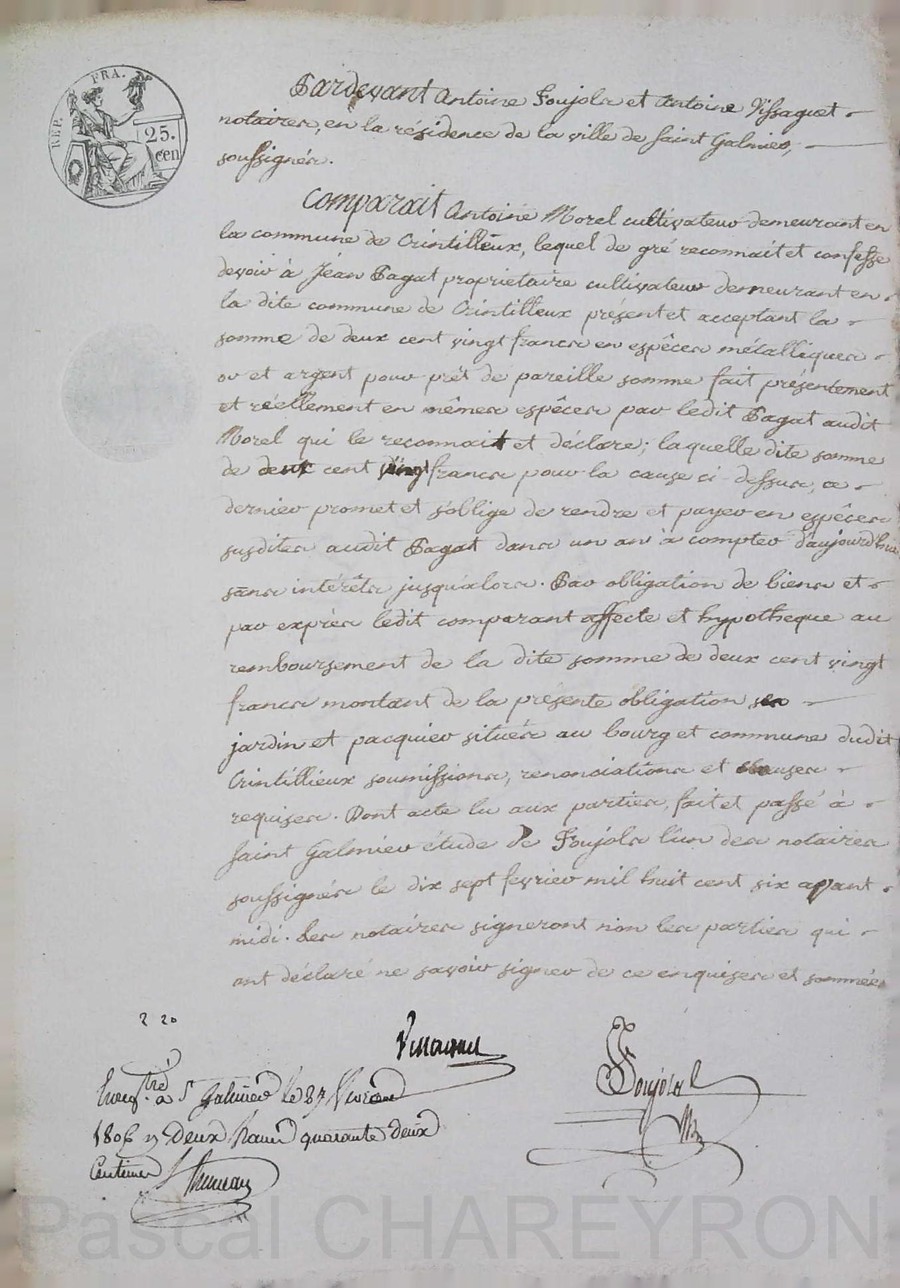 REP. FRA.
25.
cen
Pardevant Antoine Foujols et Antoine Vissaguet
notaires, en la résidence de la ville de Saint Galmier,
soussignés.
Comparait Antoine Morel cultivateur demeurant en
la commune de Crintilleux, lequel de gré reconnait et confesse
devoir à Jean Pagat propriétaire cultivateur demeurant en
la dite commune de Crintilleux présent et acceptant la
somme de deux cent vingt francs en espêces métalliques
or et argent pour prêt de pareille somme fait présentement
et réellement en mêmes espêces par ledit Pagat audit
Morel qui le reconnait et déclare; laquelle dite somme
de deux cent vingt francs pour la cause ci dessus, ce
dernier promet et s'oblige de rendre et payer en espêces
susdites audit Pagat dans un an à compter d'aujourd'hui
sans intérêts jusqu'alors. Par obligation de biens et
par exprès ledit comparant affecte et hypotheque au
remboursement de la dite somme de deux cent vingt
francs montant de la présente obligation ses
jardin et pacquier situés au bourg et commune dudit
Crintillieux soumissions, renonciations et clauses
requises. Dont acte lu aux parties, fait et passé à
Saint Galmier étude de Foujols l'un des notaires
soussignés le dix sept fevrier mil huit cent six avant
midi. Les notaires signeront non les parties qui
ont déclaré ne savoir signer de ce enquises et sommées
2 20
Vissaguet
Foujols
Enreg.tré à St Galmier le
1806 deux francs quarante deux
Centimes
Pascal CHAREYRON